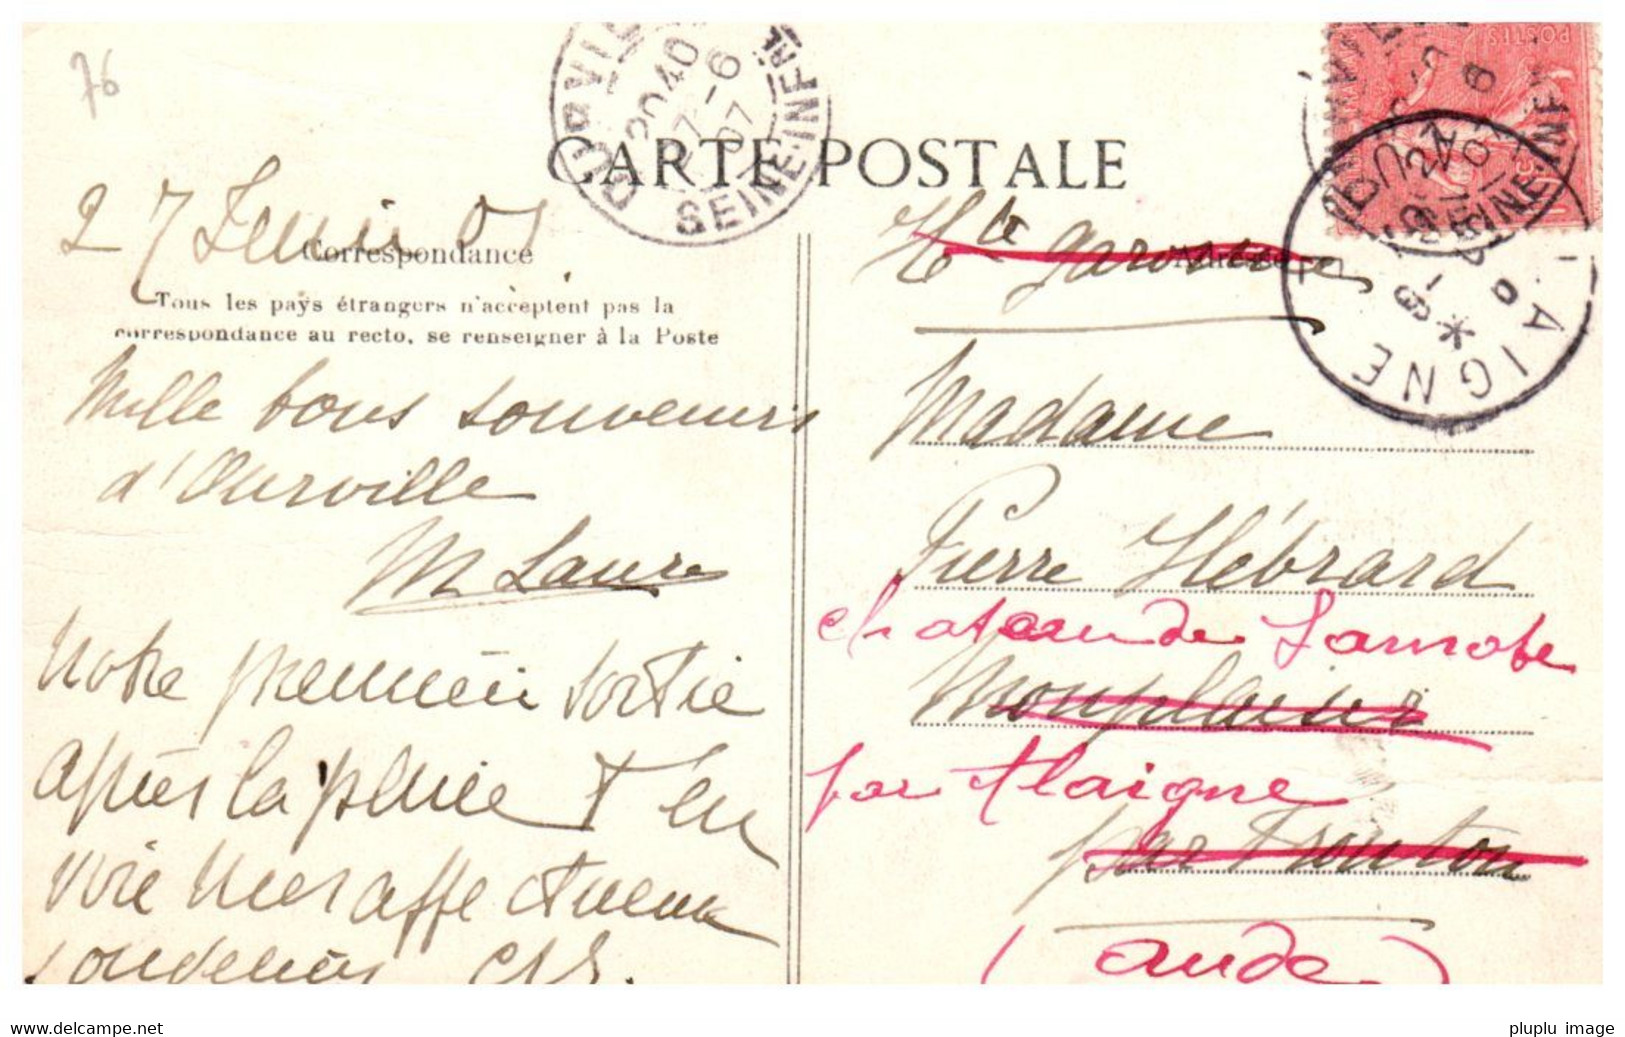 76
OURVILLE
20 40
27 - 6
07
SEINE-INFRE
CARTE POSTALE
POSTES
27 Juin 07
Correspondance
Tous les pays étrangers n'acceptent pas la
correspondance au recto, se renseigner à la Poste
Mille bons souvenirs
d'Ourville
M Laure
Notre première sortie
après la pluie
voie mes affectueux
souvenirs
Hte garonne
Madame
Pierre Hébrard
chateau de Lamote
Monplaisir
par Alaigne
par Fronton
(Aude)
ALAIGNE
delcampe.net
pluplu image